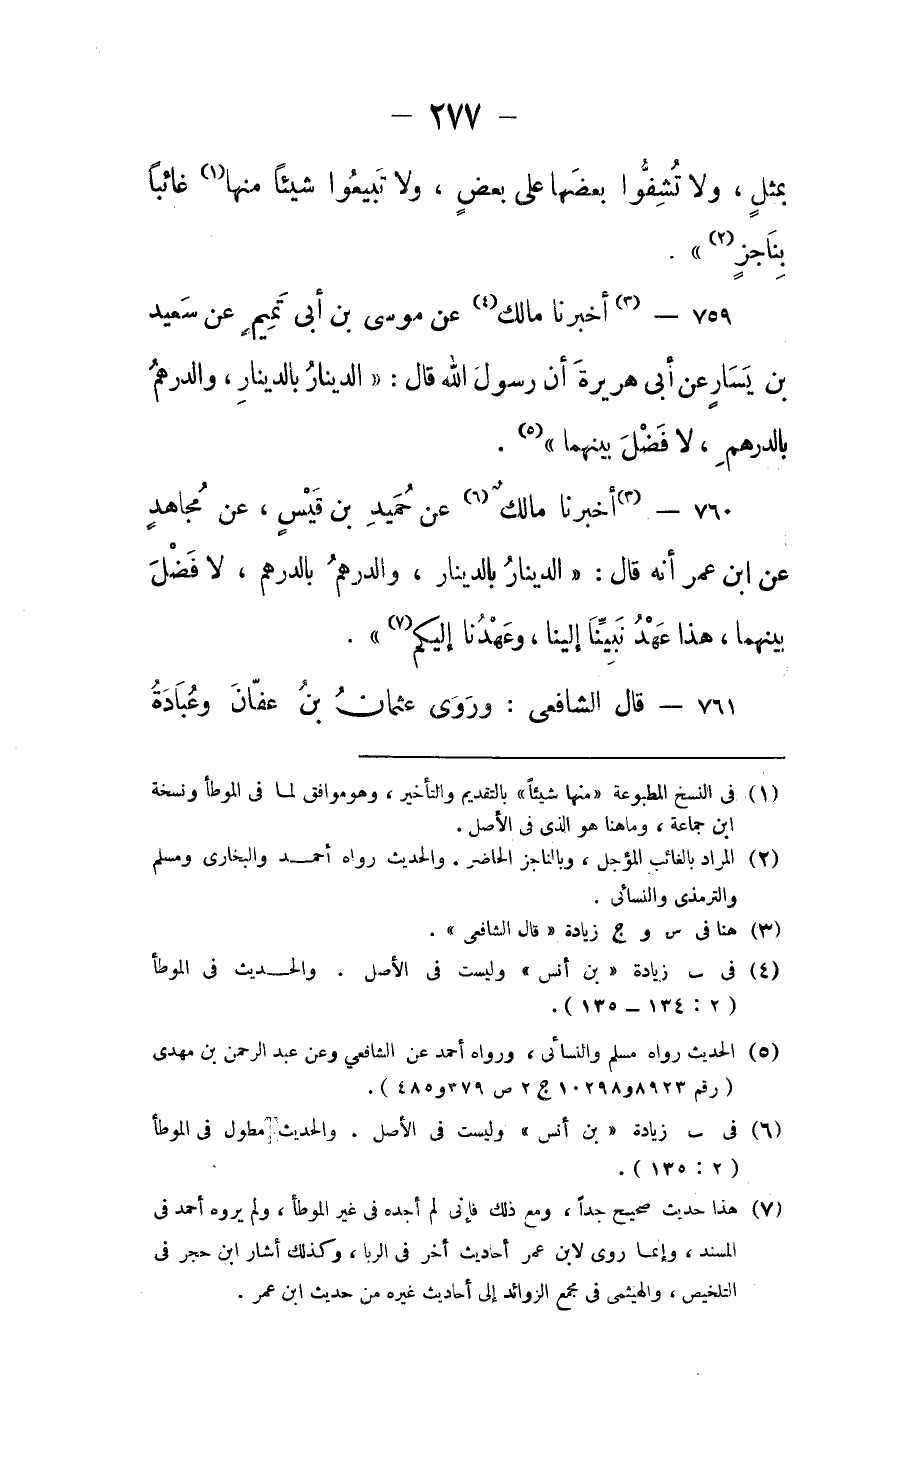 — ٢٧٧ —
بمثلٍ ، ولا تُشِفُّوا بعضَها على بعضٍ ، ولا تَبيعُوا شيئًا منها(١) غائبًا
بِنَاجزٍ(٢) » .
٧٥٩ — (٣) أخبرنا مالك(٤) عن موسى بن أبى تَمِيمٍ عن سَعيد
بن يَسَارٍ عن أبى هريرةَ أن رسولَ الله قال : « الدينارُ بالدينارِ ، والدرهمُ
بالدرهمِ ، لا فَضْلَ بينهما »(٥) .
٧٦٠ — (٣) أخبرنا مالكٌ(٦) عن حُمَيدِ بن قَيْسٍ ، عن مُجاهدٍ
عن ابن عمر أنه قال : « الدينارُ بالدينار ، والدرهمُ بالدرهم ، لا فَضْلَ
بينهما ، هذا عَهْدُ نَبِيِّنَا إلينا ، وعَهْدُنا إليكم(٧) » .
٧٦١ — قال الشافعى : ورَوَى عثمانُ بنُ عفّانَ وعُبَادَةُ
(١) فى النسخ المطبوعة «منها شيئًا» بالتقديم والتأخير ، وهو موافق لما فى الموطأ ونسخة
ابن جماعة ، وماهنا هو الذى فى الأصل .
(٢) المراد بالغائب المؤجل ، وبالناجز الحاضر . والحديث رواه أحمد والبخارى ومسلم
والترمذى والنسائى .
(٣) هنا فى س و ج زيادة « قال الشافعى » .
(٤) فى ب زيادة « بن أنس » وليست فى الأصل . والحديث فى الموطأ
( ٢ : ١٣٤ – ١٣٥ ) .
(٥) الحديث رواه مسلم والنسائى ، ورواه أحمد عن الشافعي وعن عبد الرحمن بن مهدى
( رقم ٨٩٢٣ و١٠٢٩٨ ج ٢ ص ٣٧٩ و٤٨٥ ) .
(٦) فى ب زيادة « بن أنس » وليست فى الأصل . والحديث مطول فى الموطأ
( ٢ : ١٣٥ ) .
(٧) هذا حديث صحيح جداً ، ومع ذلك فإنى لم أجده فى غير الموطأ ، ولم يروه أحمد فى
المسند ، وإنما روى لابن عمر أحاديث أخر فى الربا ، وكذلك أشار ابن حجر فى
التلخيص ، والهيثمى فى مجمع الزوائد إلى أحاديث غيره من حديث ابن عمر .